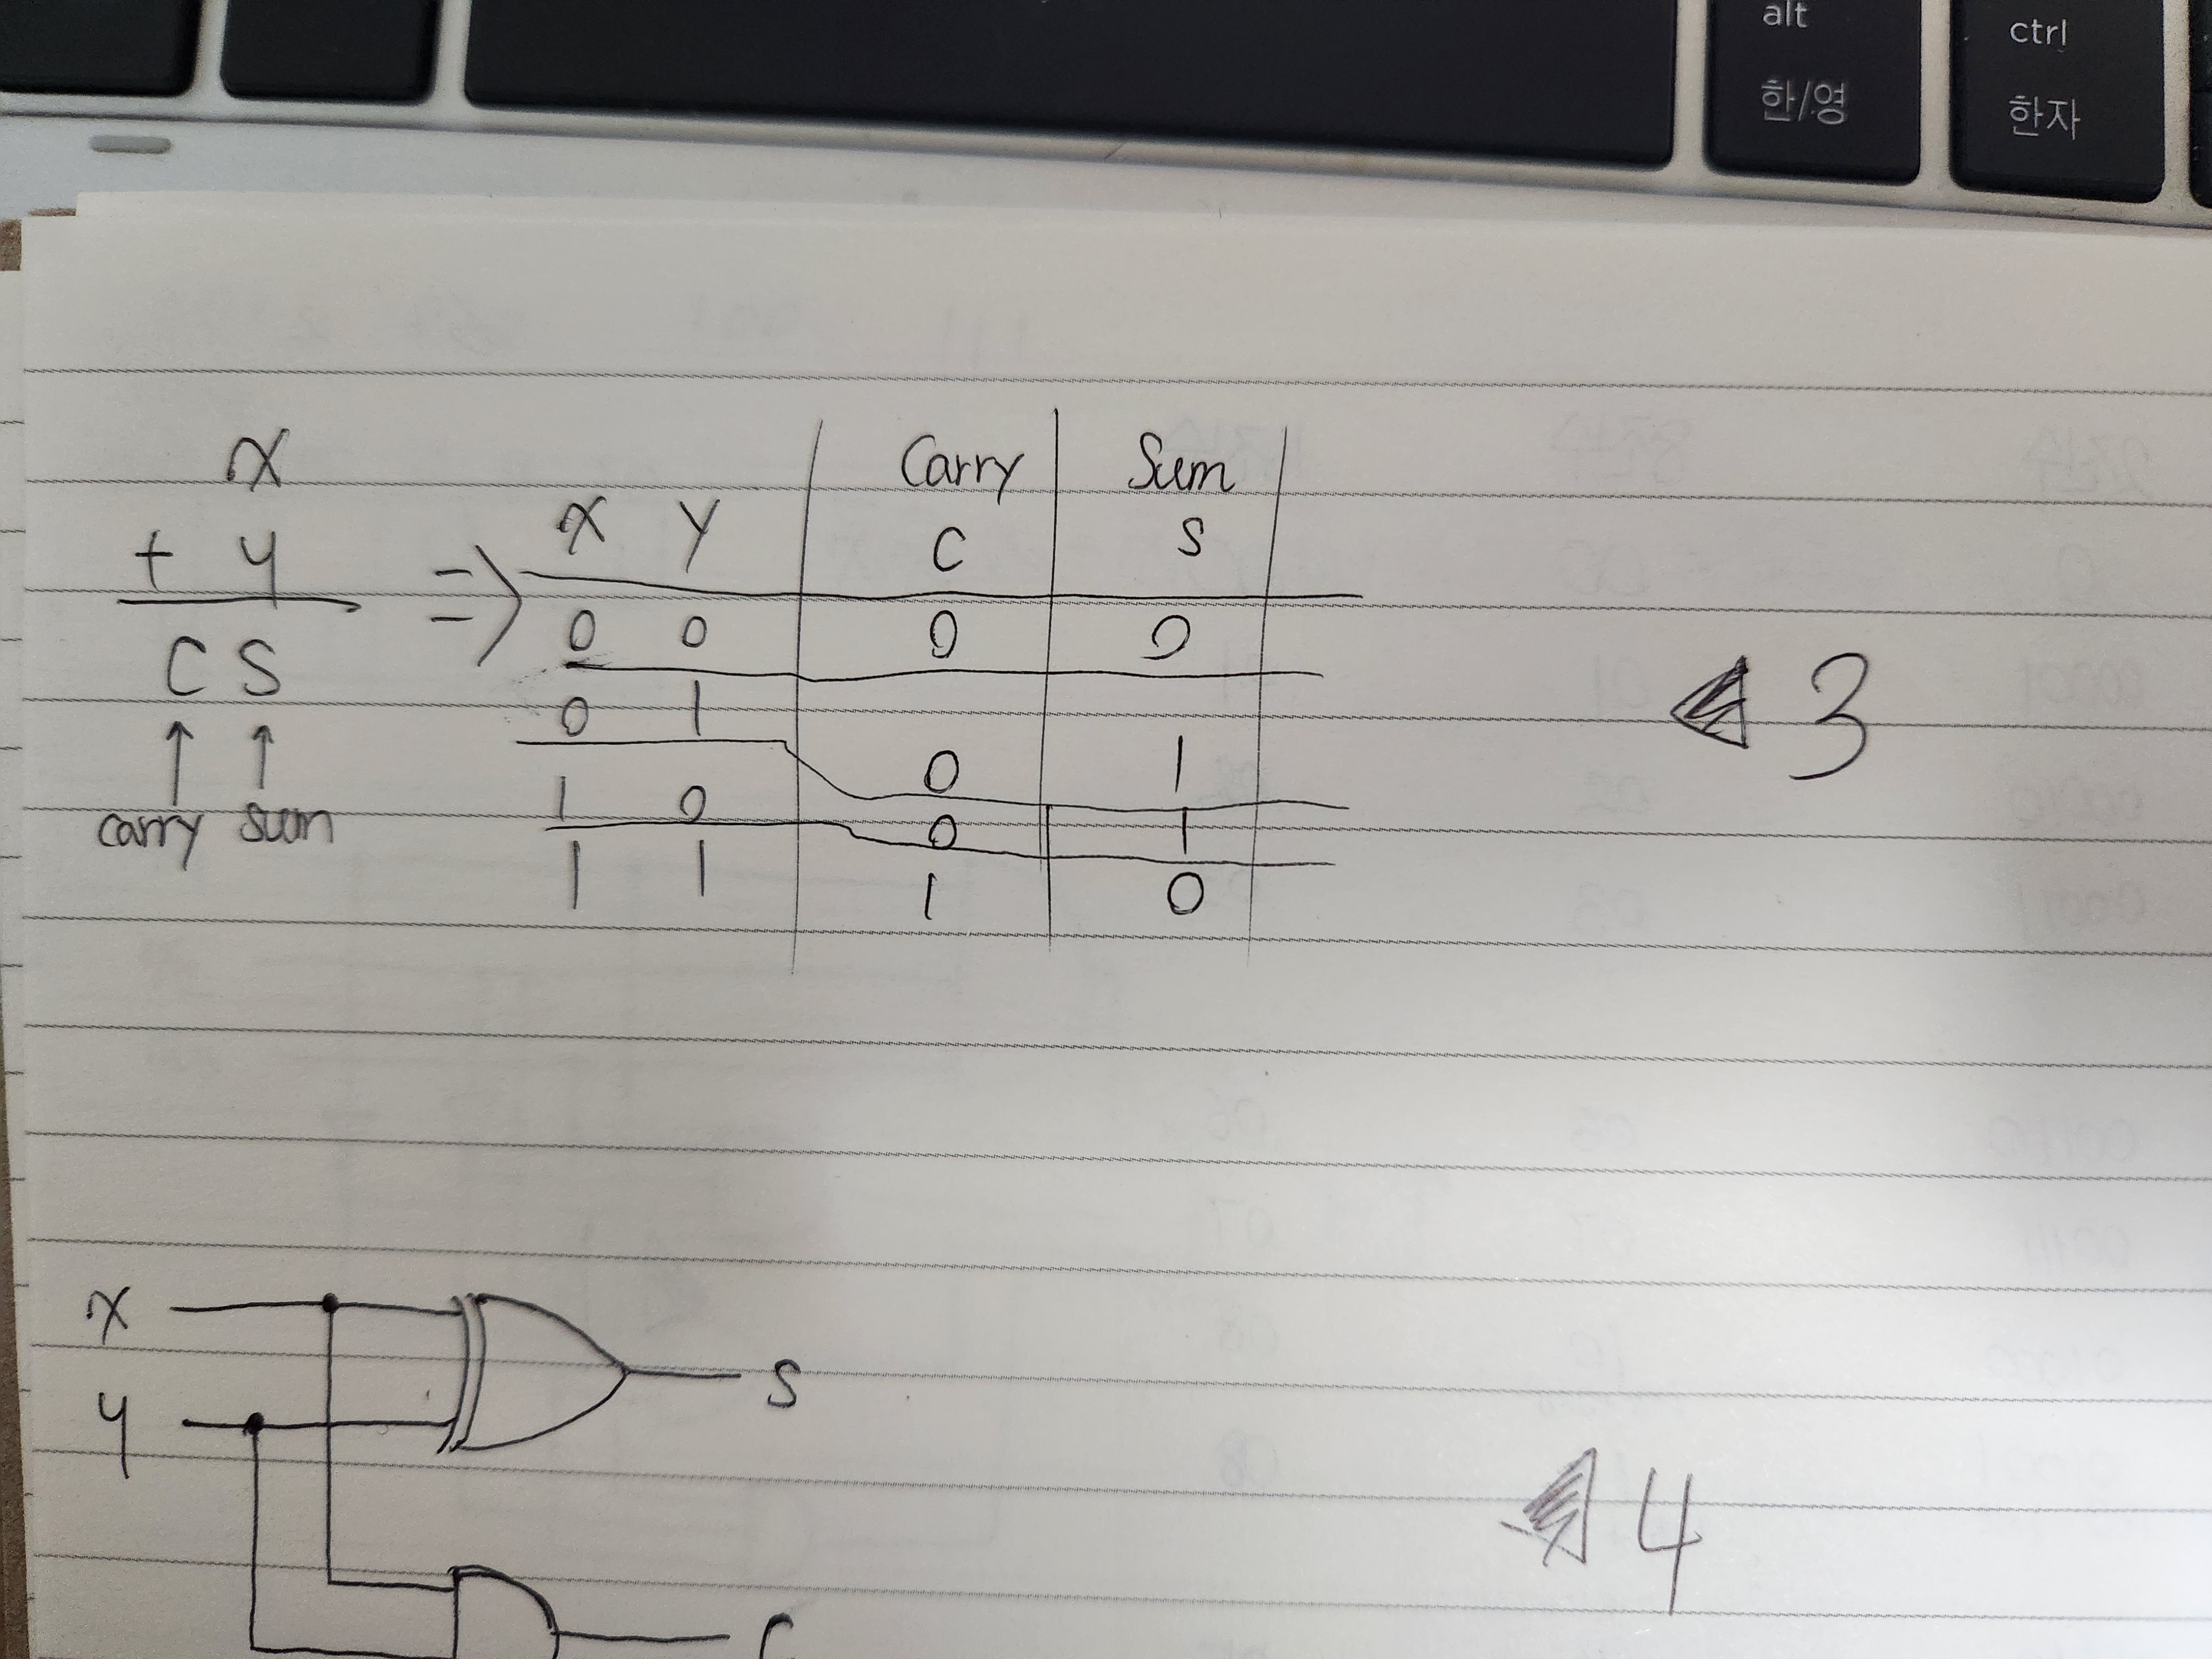 alt
ctrl
한/영
한자
x
+ y
C S
↑ ↑
carry sum
⇒
Carry Sum
x y C S
0 0 0 0
0 1 0 1
1 0 0 1
1 1 1 0
◀ 3
x
y
S
◀ 4